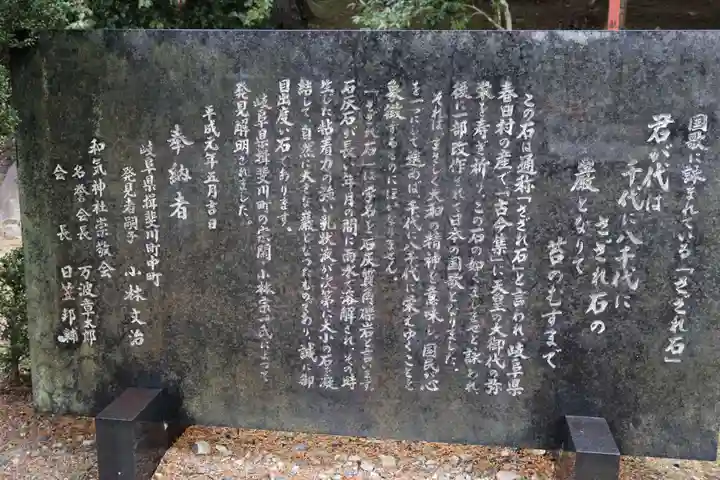 国歌に詠まれている「さざれ石」
君が代は
千代に八千代に
さざれ石の
巌となりて
苔のむすまで
この石は通称「さざれ石」と言われ、岐阜県
春日村の産で、「古今集」に天皇の大御代の弥
栄を寿ぎ祈り、この石の如くましませと詠われ
後に一部改作され、日本の国歌となりました。
それは、まさしく大和の精神を意味し、国民が心
を一つにして進めば、千代に八千代に栄えゆくことを
象徴するものにほかなりません。
「さざれ石」は学名を石灰質角礫岩と言います。
石灰石が長い年月の間に雨水で溶解され、その時
生じた粘着力の強い乳状液が次第に大小の石を凝
結して、自然に大きな巌となったものであり、誠に御
目出度い石であります。
岐阜県揖斐川町の
小林宗一氏によって
発見解明されました。
平成元年五月吉日
奉納者
岐阜県揖斐川町中町
発見者嗣子 小林文治
和気神社崇敬会
名誉会長 万波章太郎
会長 日笠邦輔